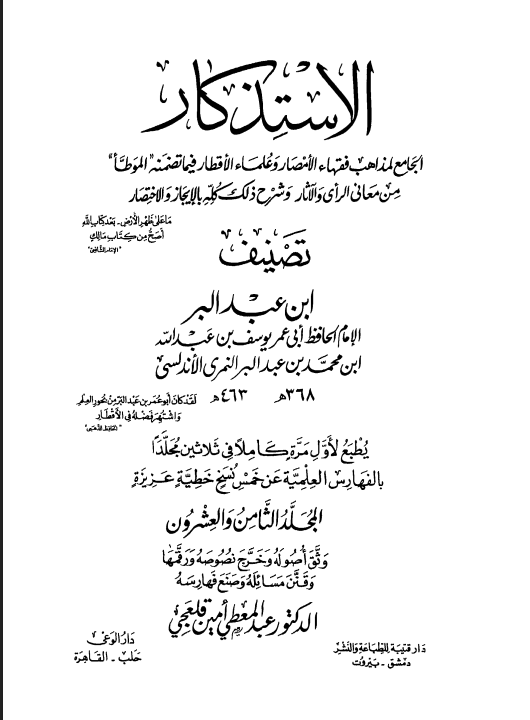 الاستذكار
الجامع لمذاهب فقهاء الأمصار وعلماء الأقطار فيما تضمنه "الموطأ"
من معاني الرأى والآثار وشرح ذلك كله بالإيجاز والاختصار
ما على ظهر الأرض - بعد كتاب الله
أصح من كتاب مالك
"الإمام الشافعي"
تصنيف
ابن عبد البر
الإمام الحافظ أبي عمر يوسف بن عبد الله
ابن محمد بن عبد البر النمري الأندلسى
٣٦٨هـ ٤٦٣هـ
لقد كان أبو عمر بن عبد البر من بحور العلم
واشتهر فضله في الأقطار
"الحافظ الذهبي"
يُطبع لأوّل مرّة كاملاً في ثلاثين مجلّدًا
بالفهارس العلميّة عن خمس نسخ خطيّة عزيزة
المجلد الثامن والعشرون
وثّق أصوله وخرّج نصوصه ورقّمها
وقنّن مسائله وصنع فهارسه
الدكتور عبد المعطي أمين قلعجي
دار قتيبة للطباعة والنشر
دمشق - بيروت
دار الوعي
حلب - القاهرة